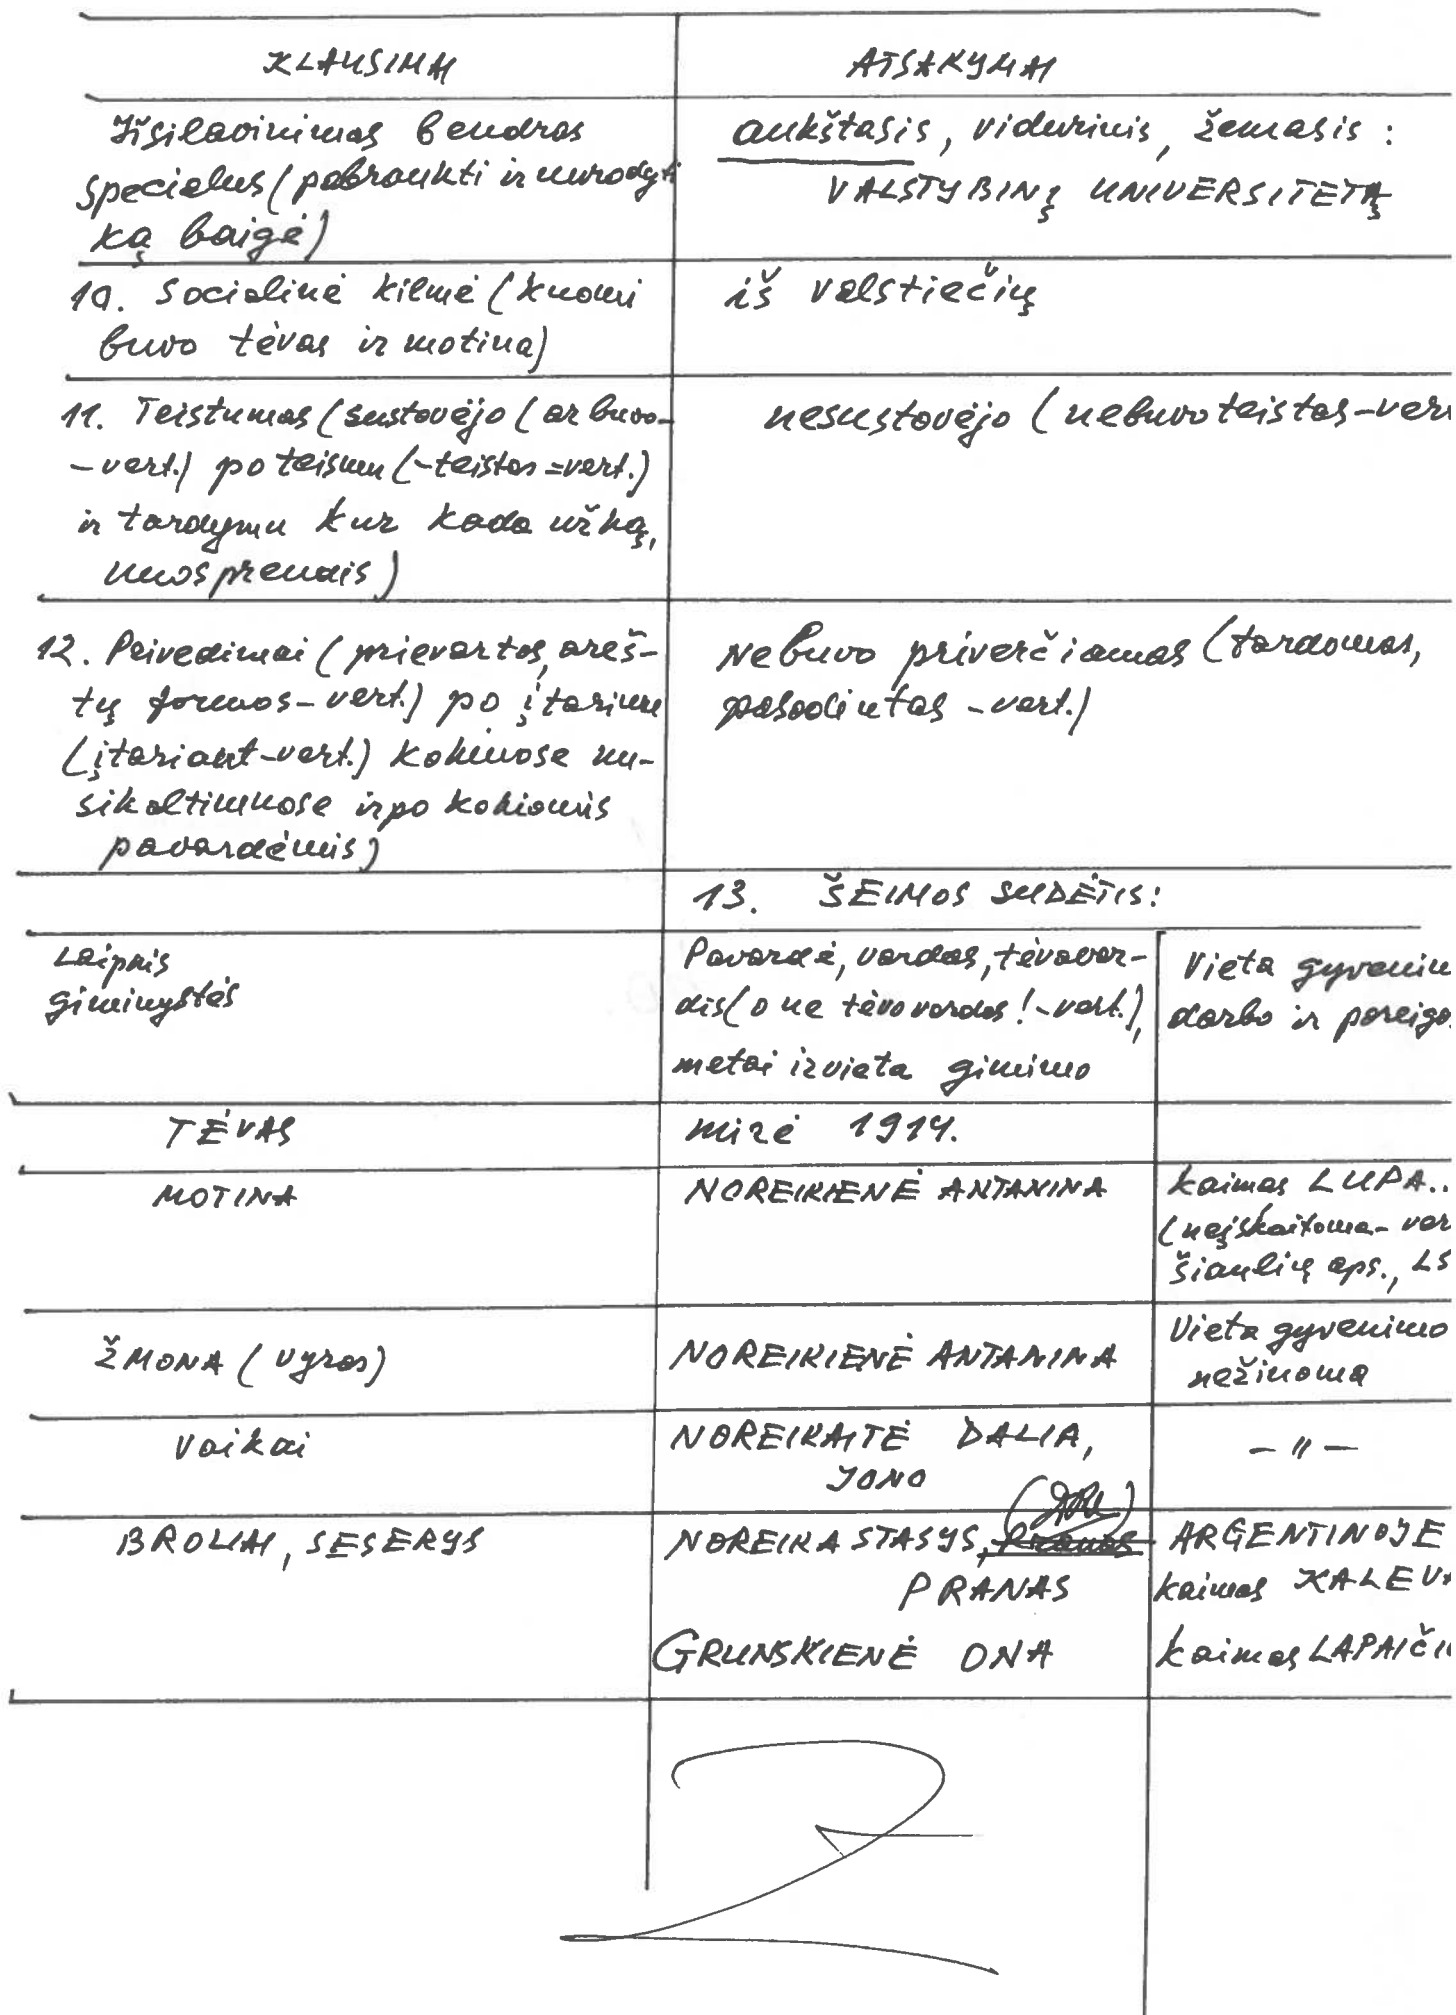 KLAUSIMAI
ATSAKYMAI
Išsilavinimas bendras
specialus (pabraukti ir nurodyti
ką baigė)
aukštasis, vidurinis, žemasis:
VALSTYBINĮ UNIVERSITETĄ
10. Socialinė kilmė (kuomi
buvo tėvas ir motina)
iš valstiečių
11. Teistumas (sustovėjo (ar buvo-
-vert.) po teismu (-teistas=vert.)
ir tardymu kur kada už ką,
nuosprendis)
nesustovėjo (nebuvo teistas-ver
12. Peivedimai (prievartos, areš-
tų formos-vert.) po įtarimu
(įtariant-vert.) kokiuose nu-
sikaltimuose ir po kokiomis
pavardėmis)
Nebuvo priverčiamas (tardomas,
pasodintas -vert.)
13. ŠEIMOS SUDĖTIS:
Laipnis
giminystės
Pavardė, vardas, tėvavar-
dis (o ne tėvo vardas!-vert.),
metai ir vieta gimimo
Vieta gyvenim
darbo ir pareigo
TĖVAS
mirė 1914.
MOTINA
NOREIKIENĖ ANTANINA
kaimas LUPA..
(neįskaitoma-ver
Šiaulių aps., LS
ŽMONA (vyras)
NOREIKIENĖ ANTANINA
Vieta gyvenimo
nežinoma
Vaikai
NOREIKAITĖ DALIA,
JONO
- " -
BROLIAI, SESERYS
NOREIKA STASYS, Pranas
ARGENTINOJE
PRANAS
kaimas KALEV
GRUNSKIENĖ ONA
kaimas LAPAIČI